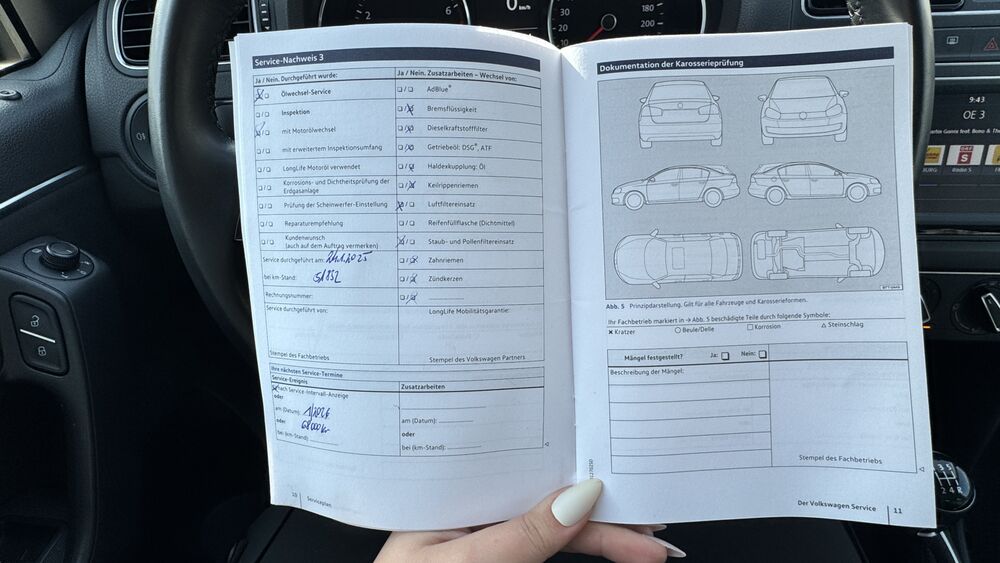 2
6
0
30
10
180
200
Service-Nachweis 3
Ja / Nein. Durchgeführt wurde:
Ölwechsel-Service
Inspektion
mit Motorölwechsel
mit erweitertem Inspektionsumfang
LongLife Motoröl verwendet
Korrosions- und Dichtheitsprüfung der
Erdgasanlage
Prüfung der Scheinwerfer-Einstellung
Reparaturempfehlung
Kundenwunsch
(auch auf dem Auftrag vermerken)
Service durchgeführt am:
bei km-Stand:
Rechnungsnummer:
Service durchgeführt von:
Stempel des Fachbetriebs
Ja / Nein. Zusatzarbeiten – Wechsel von:
AdBlue®
Bremsflüssigkeit
Dieselkraftstofffilter
Getriebeöl: DSG®, ATF
Haldexkupplung: Öl
Keilrippenriemen
Luftfiltereinsatz
Reifenfüllflasche (Dichtmittel)
Staub- und Pollenfiltereinsatz
Zahnriemen
Zündkerzen
LongLife Mobilitätsgarantie:
Stempel des Volkswagen Partners
Ihre nächsten Service-Termine
Service-Ereignis
nach Service-Intervall-Anzeige
oder
am (Datum):
oder
68000
bei (km-Stand)
Zusatzarbeiten
am (Datum):
oder
bei (km-Stand):
10
Serviceplan
Dokumentation der Karosserieprüfung
Abb. 5 Prinzipdarstellung. Gilt für alle Fahrzeuge und Karosserieformen.
Ihr Fachbetrieb markiert in → Abb. 5 beschädigte Teile durch folgende Symbole:
× Kratzer ○ Beule/Delle □ Korrosion △ Steinschlag
Mängel festgestellt? Ja: Nein:
Beschreibung der Mängel:
Stempel des Fachbetriebs
Der Volkswagen Service 11
9:43
OE 3